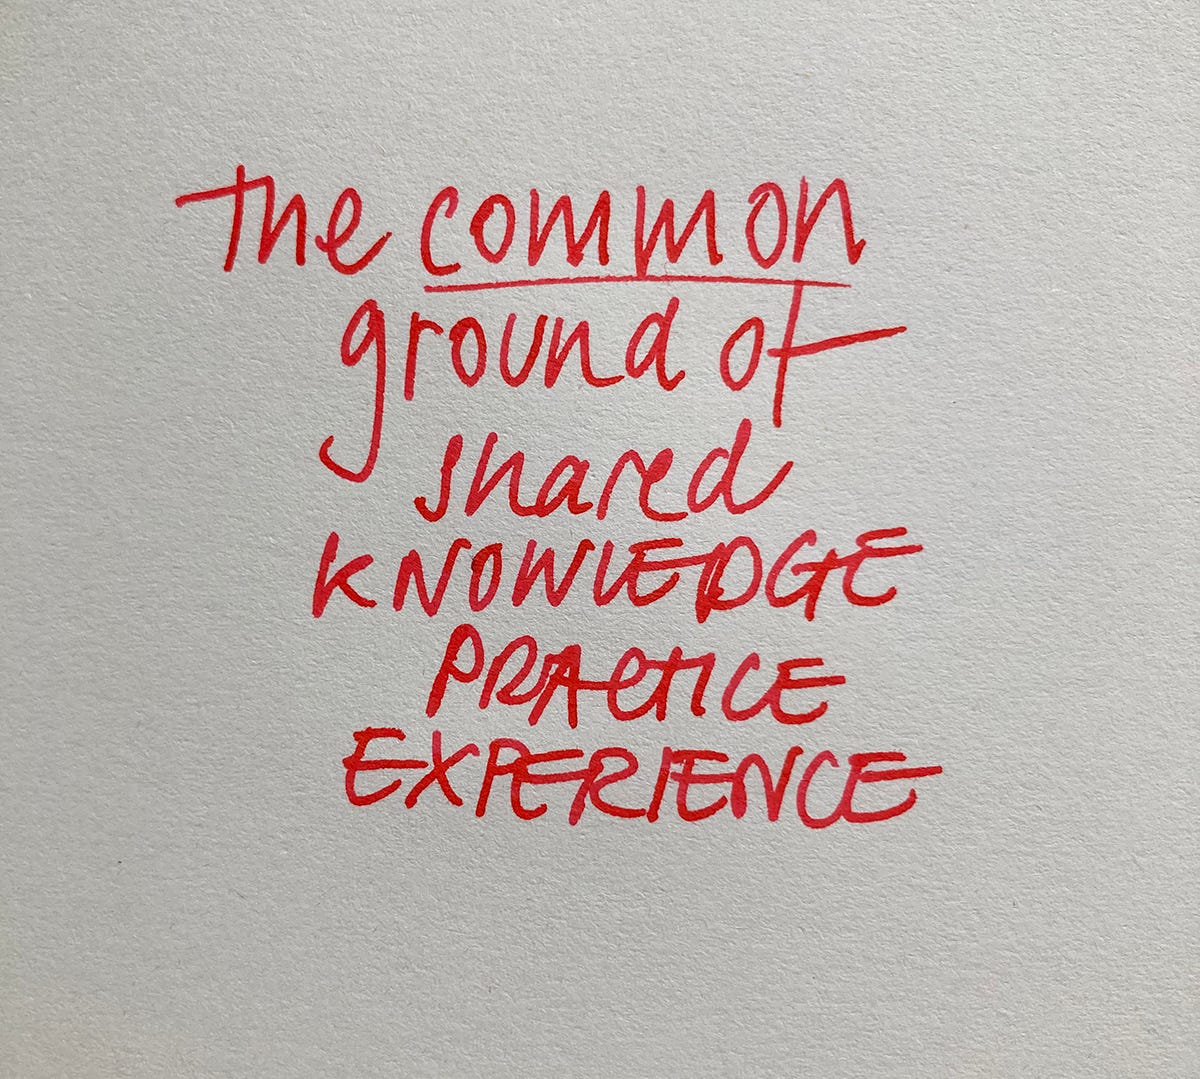 the common
ground of
shared
KNOWLEDGE
PRACTICE
EXPERIENCE